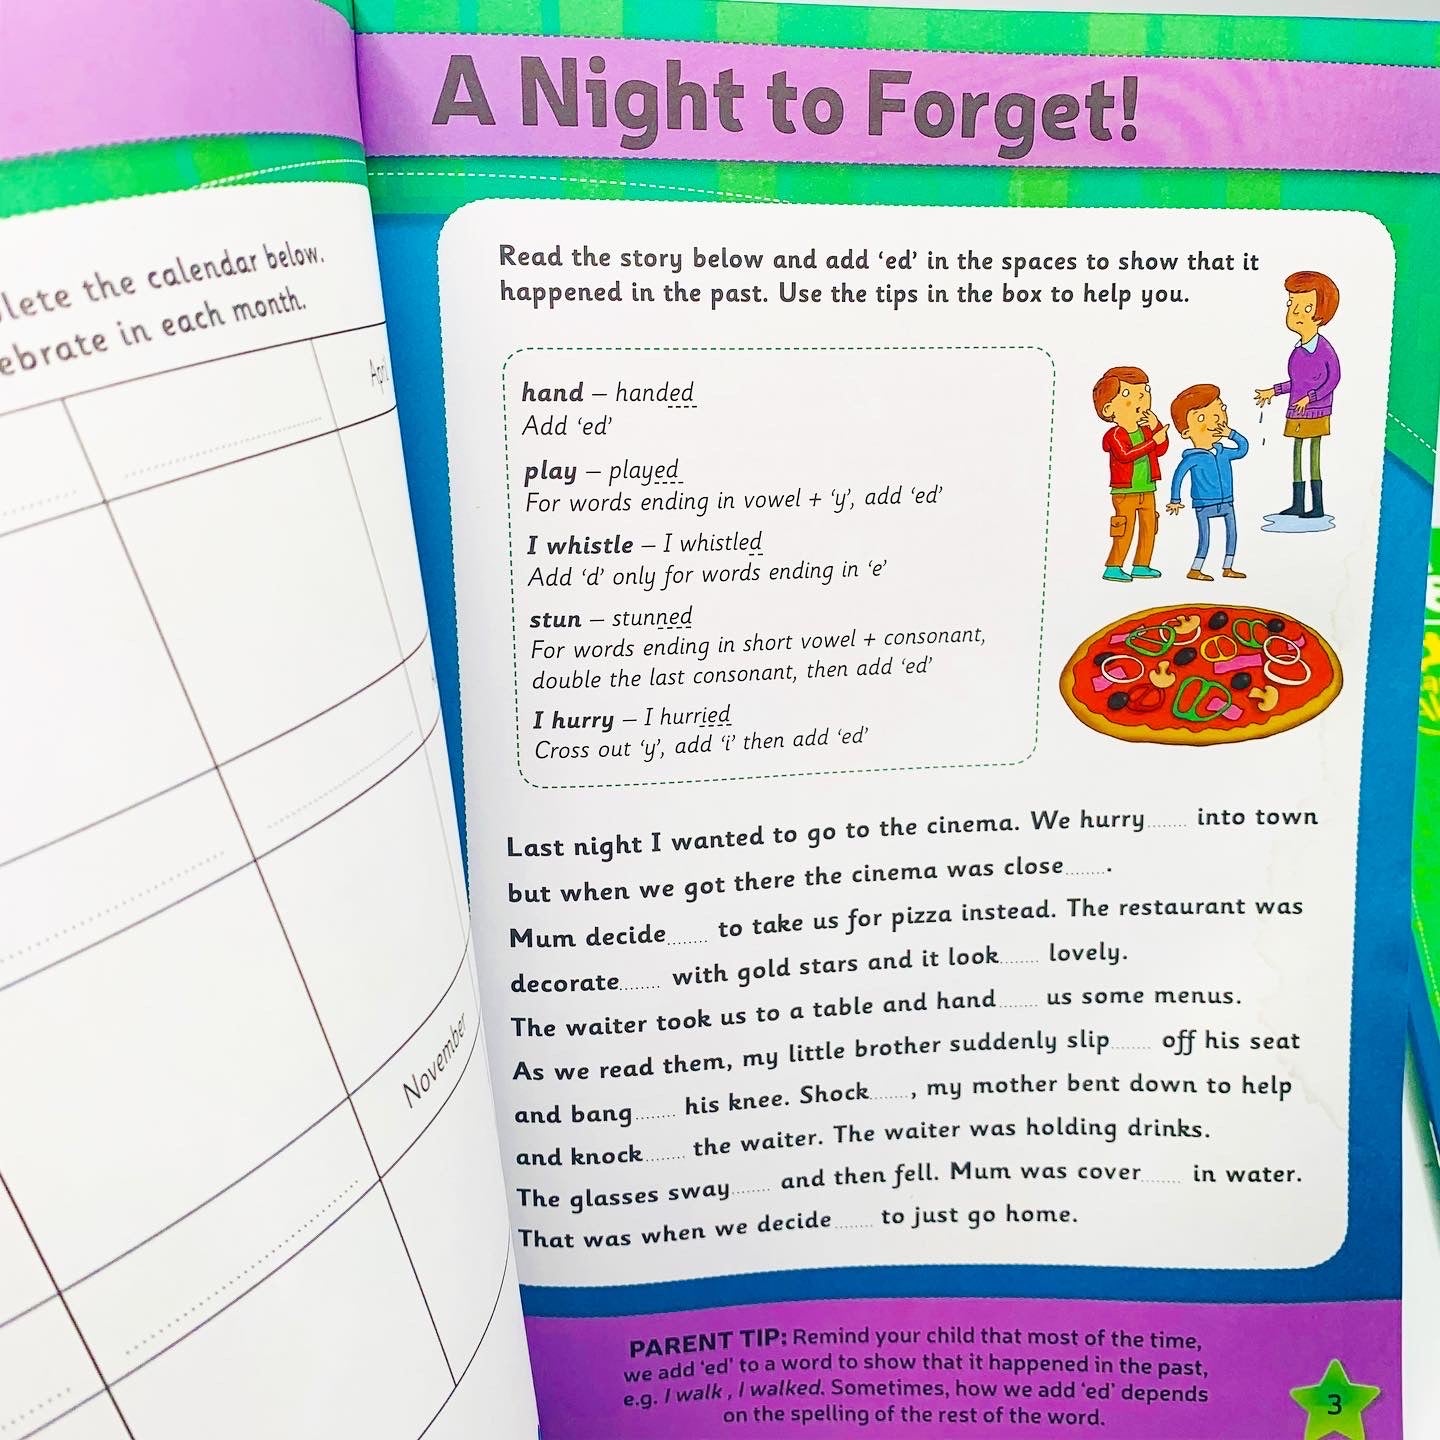 lete the calendar below.
ebrate in each month.
April
November
A Night to Forget!
Read the story below and add ‘ed’ in the spaces to show that it
happened in the past. Use the tips in the box to help you.
hand – handed
Add ‘ed’
play – played
For words ending in vowel + ‘y’, add ‘ed’
I whistle – I whistled
Add ‘d’ only for words ending in ‘e’
stun – stunned
For words ending in short vowel + consonant,
double the last consonant, then add ‘ed’
I hurry – I hurried
Cross out ‘y’, add ‘i’ then add ‘ed’
Last night I wanted to go to the cinema. We hurry........ into town
but when we got there the cinema was close........ .
Mum decide........ to take us for pizza instead. The restaurant was
decorate........ with gold stars and it look........ lovely.
The waiter took us to a table and hand........ us some menus.
As we read them, my little brother suddenly slip........ off his seat
and bang........ his knee. Shock........, my mother bent down to help
and knock........ the waiter. The waiter was holding drinks.
The glasses sway........ and then fell. Mum was cover........ in water.
That was when we decide........ to just go home.
PARENT TIP: Remind your child that most of the time,
we add ‘ed’ to a word to show that it happened in the past,
e.g. I walk , I walked. Sometimes, how we add ‘ed’ depends
on the spelling of the rest of the word.
3